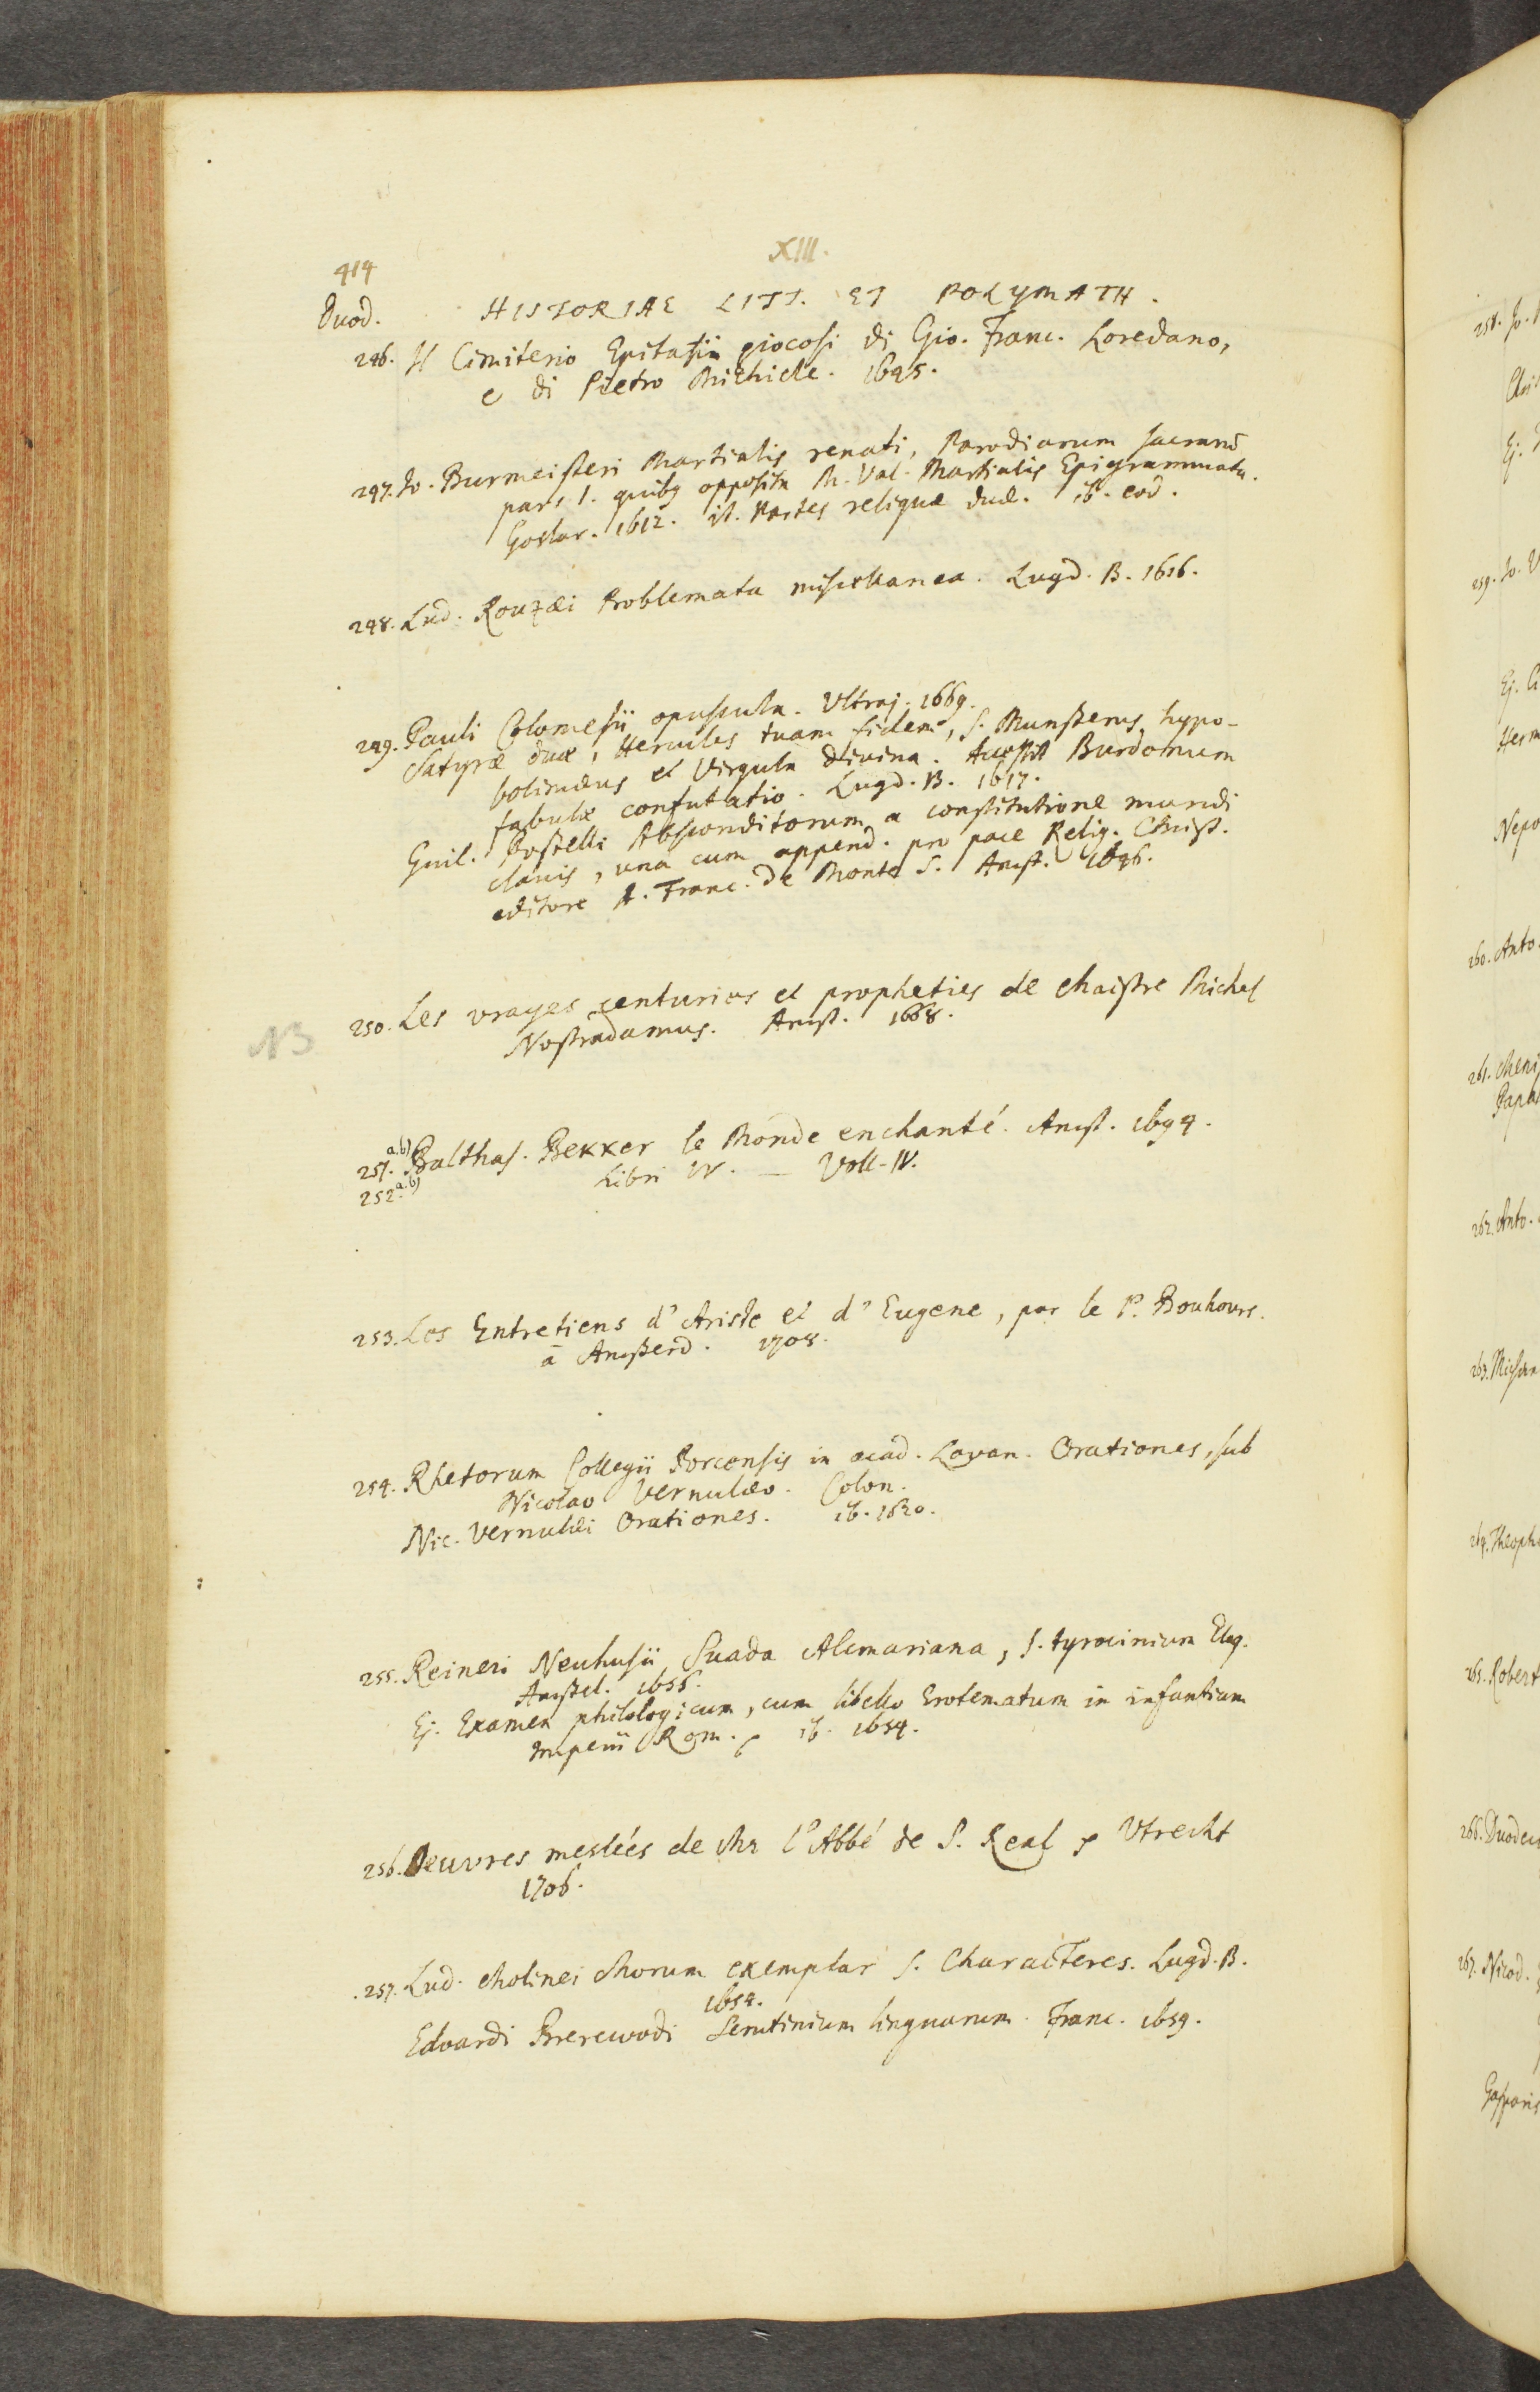 XIII.
414
Duod. HISTORIAE LITT. ET POLYMATH.
246. Il Cimiterio Epitafii giocosi di Gio. Franc. Loredano,
e di Pietro Michiele. 1645.
247. Jo. Burmeisteri Martialis renati, Parodiarum sacrarū
pars 1. quibq opposita M. Val. Martialis Epigrammata.
Goslar. 1612. it. Partes reliquæ duæ. ib. eod.
248. Lud. Rouzæi Problemata miscellanea. Lugd. B. 1616.
249. Pauli Colomesii opuscula. Ultraj. 1669.
Satyræ duæ, Hercules tuam fidem, s. Munsterus hypo-
bolimæus et Virgula divina. Accessit Burdonum
fabulæ confutatio. Lugd. B. 1617.
Guil. Postelli Absconditorum a constitutione mundi
clavis, una cum append. pro pace Relig. Christ.
editore A. Franc. de Monte S. Amst. 1646.
NB 250. Les vrayes centuries et propheties de Maistre Michel
Nostradamus. Amst. 1668.
251. a.b) Balthas. Bekker le Monde enchanté. Amst. 1694.
252. a.b) Libri IV. — Voll. IV.
253. Les Entretiens d'Ariste et d'Eugene, par le P. Bouhours.
à Amsterd. 1708.
254. Rhetorum Collegii Porcensis in acad. Lovan. Orationes, sub
Nicolao Vernulæo. Colon.
Nic. Vernulæi Orationes. ib. 1630.
255. Reineri Neuhusii Suada Alcmariana, s. tyrocinium Eloq.
Amstel. 1655.
Ej. Examen philologicum, cum libello Erotematum in infantiam
Imperii Rom. ib. 1654.
256. Oeuvres meslées de Mr l'Abbé de S. Real Utrecht
1706.
257. Lud. Molinei Morum exemplar s. Characteres. Lugd. B.
1654.
Edvardi Brerewodi Scrutinium linguarum. Franc. 1659.
258. Jo.
Ej.
259. Jo.
Ej.
Herm
Nepo
260. Anto.
261. Meni
Papa
262. Anto.
263. Miscan
264. Theoph
265. Robert
266. Duodec
267. Nicod.
Gasparis